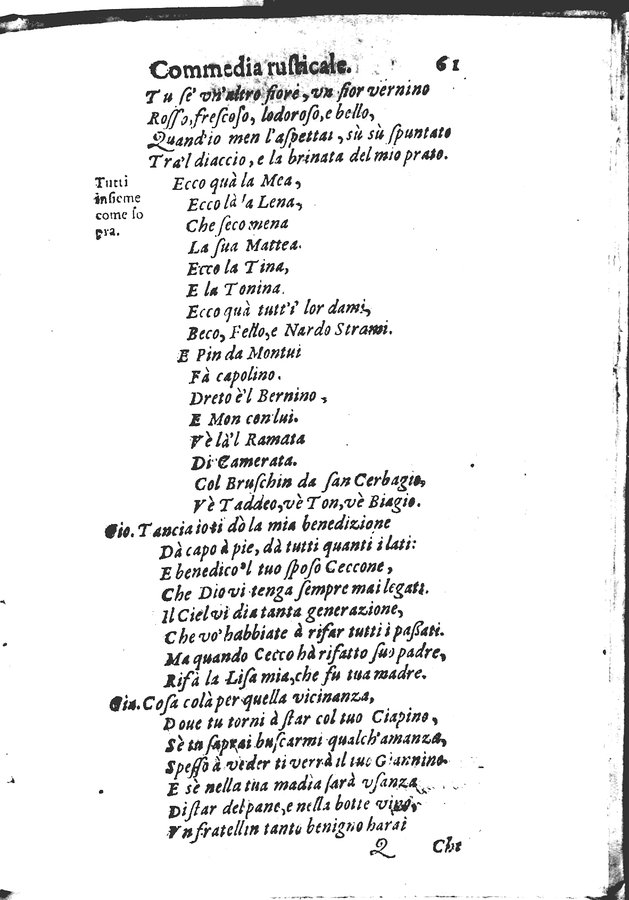 Commedia rusticale. 61
Tu se' vn'altro fiore, vn fior vernino
Rosso, frescoso, lodoroso, e bello,
Quand'io men l'aspettai, sù sù spuntato
Tra'l diaccio, e la brinata del mio prato.
Tutti
insieme
come so
pra.
Ecco quà la Mea,
Ecco là la Lena,
Che seco mena
La sua Mattea.
Ecco la Tina,
E la Tonina.
Ecco quà tutt'i' lor dami,
Beco, Fello, e Nardo Strami.
E Pin da Montui
Fà capolino.
Dreto è'l Bernino,
E Mon con lui.
Vè là'l Ramata
Di Camerata.
Col Bruschin da san Cerbagio,
Vè Taddeo, vè Ton, vè Biagio.
Gio. Tancia io ti dò la mia benedizione
Dà capo à pie, dà tutti quanti i lati:
E benedico'l tuo sposo Ceccone,
Che Dio vi tenga sempre mai legati.
Il Ciel vi dia tanta generazione,
Che vo' habbiate à rifar tutti i passati.
Ma quando Cecco hà rifatto suo padre,
Rifà la Lisa mia, che fu tua madre.
Gia. Cosa colà per quella vicinanza,
Doue tu torni à star col tuo Ciapino,
Sè tu saprai buscarmi qualch'amanza,
Spesso à veder ti verrà il tuo Giannino.
E sè nella tua madia sarà vsanza
Di star del pane, e nella botte vino,
Vn fratellin tanto benigno harai
Q Che